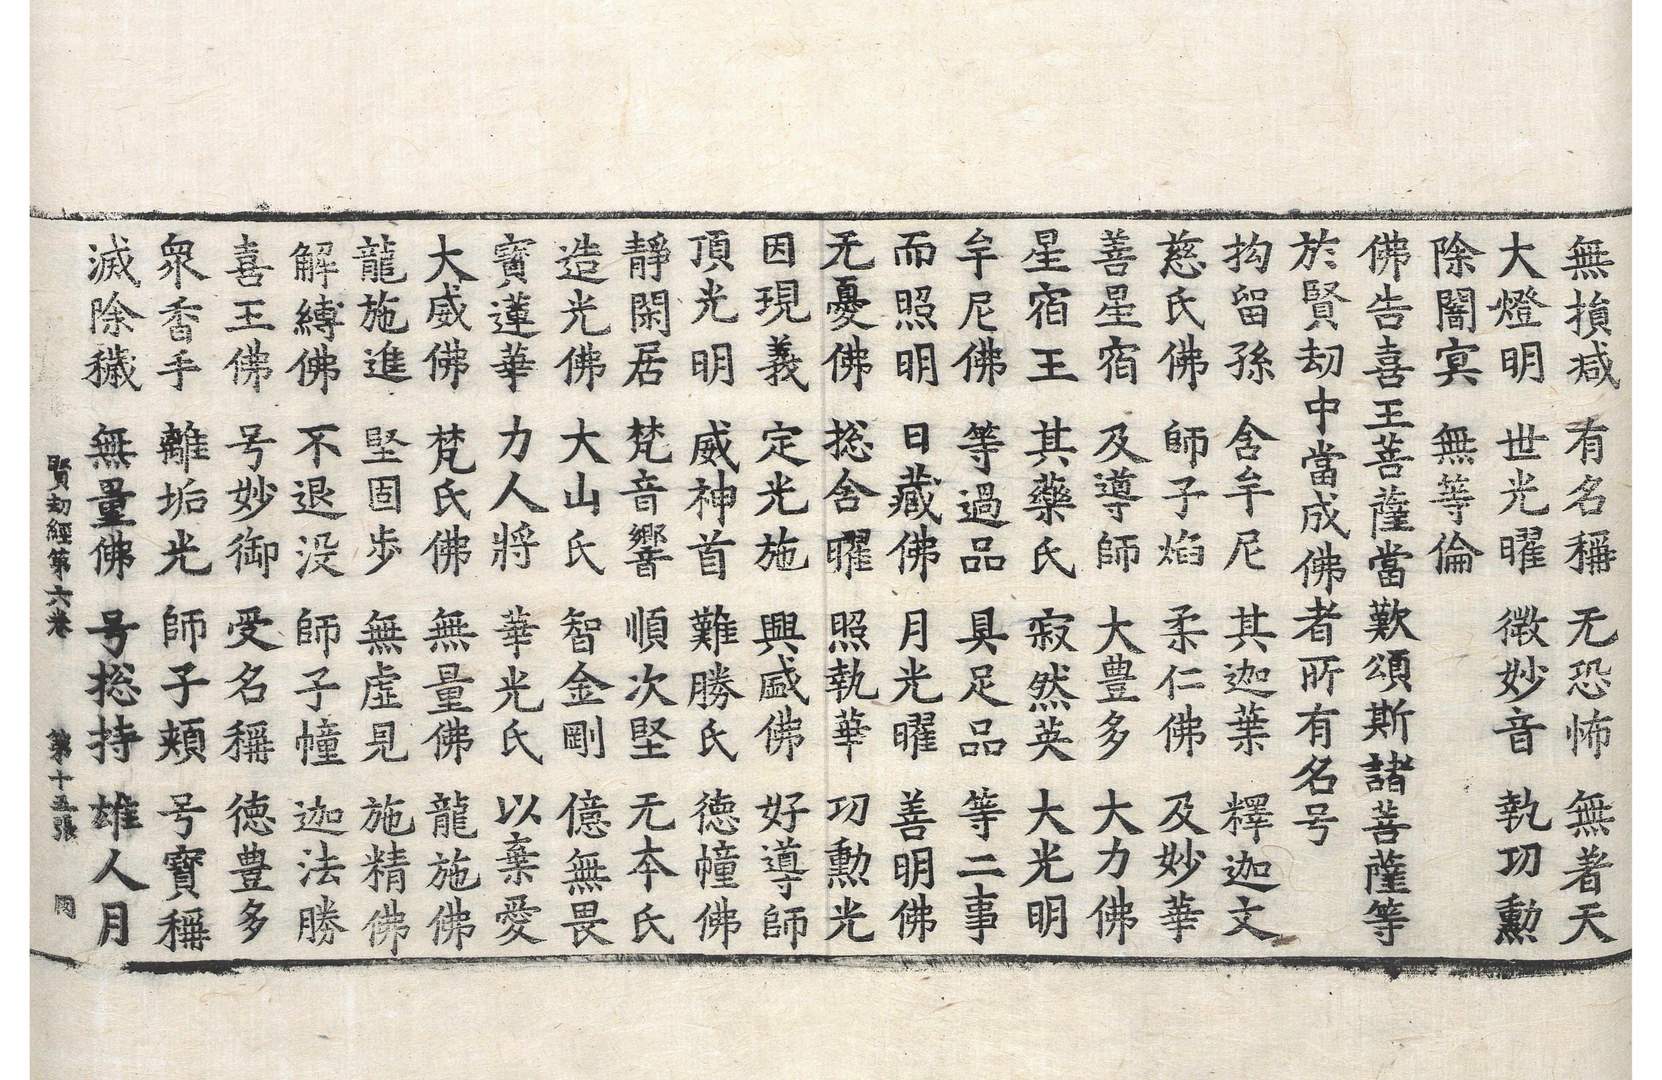 無損减　有名稱　无恐怖　無著天
大燈明　世光曜　微妙音　執功勲
除闇㝠　無等倫
佛告喜王菩薩當歎頌斯諸菩薩等
於賢劫中當成佛者所有名号
拘留孫　含牟尼　其迦葉　釋迦文
慈氏佛　師子焰　柔仁佛　及妙華
善星宿　及導師　大豊多　大力佛
星宿王　其藥氏　寂然英　大光明
牟尼佛　等過品　具足品　等二事
而照明　日藏佛　月光曜　善明佛
无憂佛　揔舍曜　照執華　功勲光
因現義　定光施　興盛佛　好導師
頂光明　威神首　難勝氏　德幢佛
靜閑居　梵音響　順次堅　无本氏
造光佛　大山氏　智金剛　億無畏
寳蓮華　力人將　華光氏　以棄愛
大威佛　梵氏佛　無量佛　龍施佛
龍施進　堅固步　無虛見　施精佛
解縛佛　不退没　師子幢　迦法勝
喜王佛　号妙御　受名稱　德豊多
衆香手　離垢光　師子頰　号寳稱
滅除穢　無量佛　号揔持　雄人月
賢劫經第六卷　第十五張　同